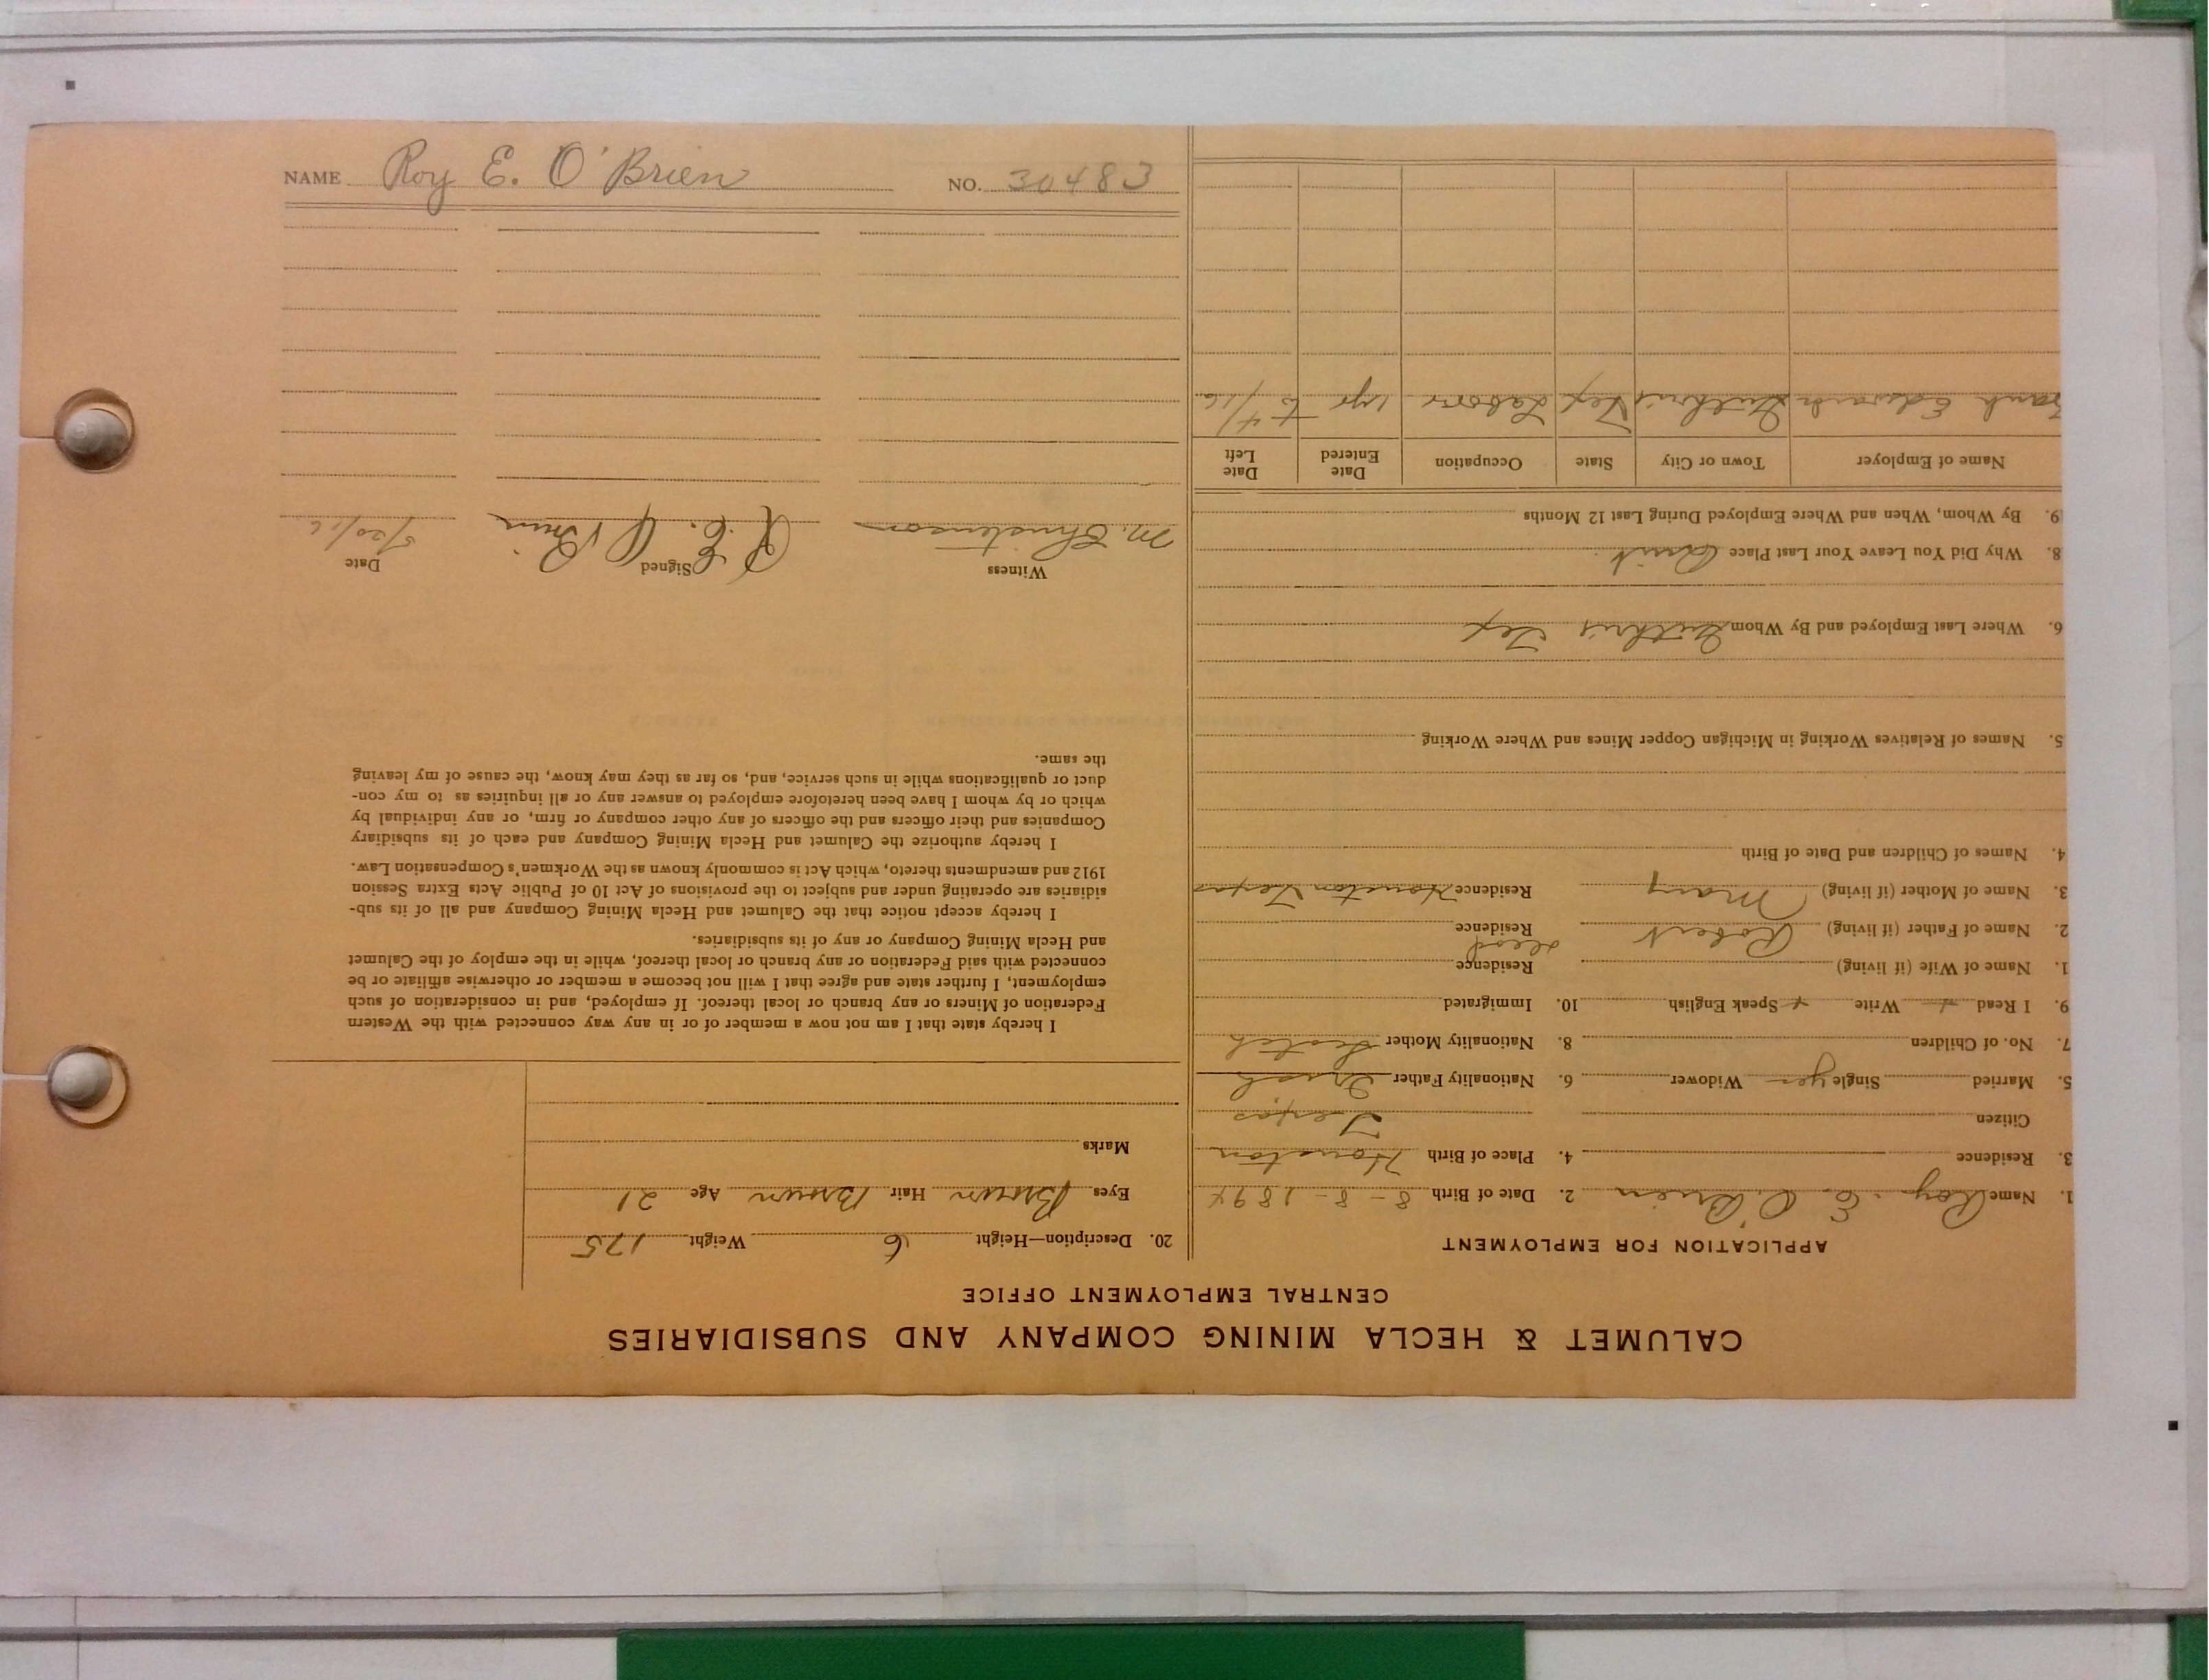 NAME Roy E. O'Brien NO. 30483
CALUMET & HECLA MINING COMPANY AND SUBSIDIARIES
CENTRAL EMPLOYMENT OFFICE
APPLICATION FOR EMPLOYMENT
1. Name Roy. E. O'Brien 2. Date of Birth 8-8-1894
3. Residence 4. Place of Birth Houston
Citizen Texas
5. Married Single yes Widower 6. Nationality Father Irish
7. No. of Children 8. Nationality Mother Scotch
9. I Read Write Speak English 10. Immigrated
1. Name of Wife (if living) Residence
2. Name of Father (if living) Robert dead Residence
3. Name of Mother (if living) Mary Residence Houston Texas
4. Names of Children and Date of Birth
5. Names of Relatives Working in Michigan Copper Mines and Where Working
6. Where Last Employed and By Whom Guthrie Tex
8. Why Did You Leave Your Last Place Quit
9. By Whom, When and Where Employed During Last 12 Months
Name of Employer Town or City State Occupation Date Entered Date Left
Edwards Guthrie Tex Labor 1 yr to 4/16
20. Description—Height 6 Weight 175
Eyes Brown Hair Brown Age 21
Marks
I hereby state that I am not now a member of or in any way connected with the Western
Federation of Miners or any branch or local thereof. If employed, and in consideration of such
employment, I further state and agree that I will not become a member or otherwise affiliate or be
connected with said Federation or any branch or local thereof, while in the employ of the Calumet
and Hecla Mining Company or any of its subsidiaries.
I hereby accept notice that the Calumet and Hecla Mining Company and all of its sub-
sidiaries are operating under and subject to the provisions of Act 10 of Public Acts Extra Session
1912 and amendments thereto, which Act is commonly known as the Workmen's Compensation Law.
I hereby authorize the Calumet and Hecla Mining Company and each of its subsidiary
Companies and their officers and the officers of any other company or firm, or any individual by
which or by whom I have been heretofore employed to answer any or all inquiries as to my con-
duct or qualifications while in such service, and, so far as they may know, the cause of my leaving
the same.
Witness Signed Date
M. Christenson R. E. O'Brien 5/20/16